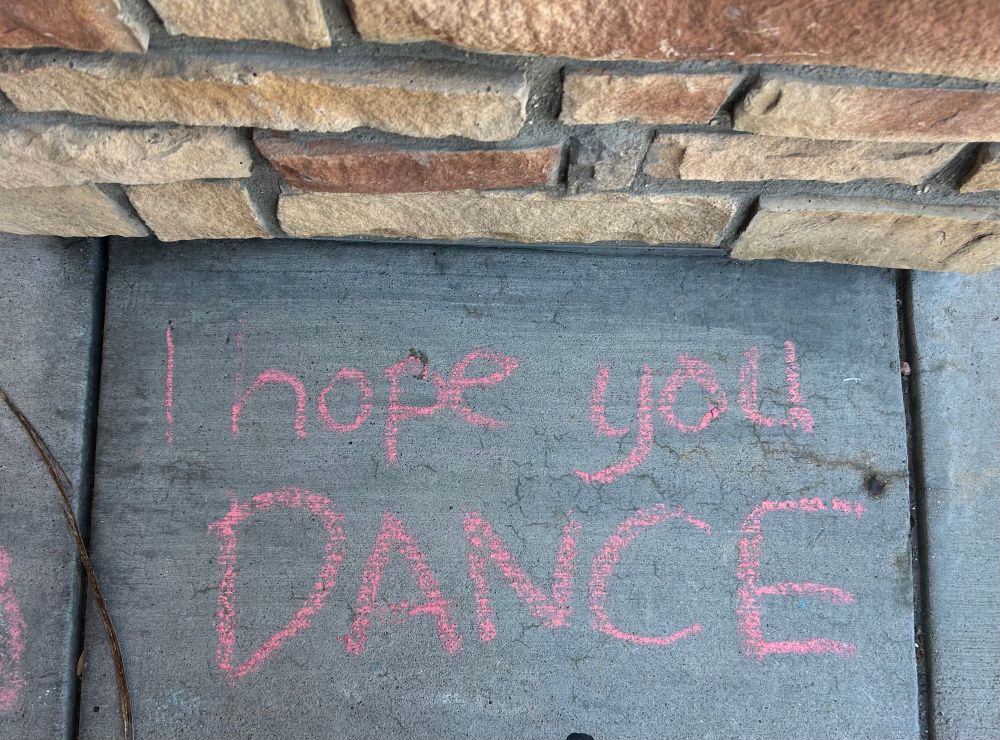 I hope you
DANCE